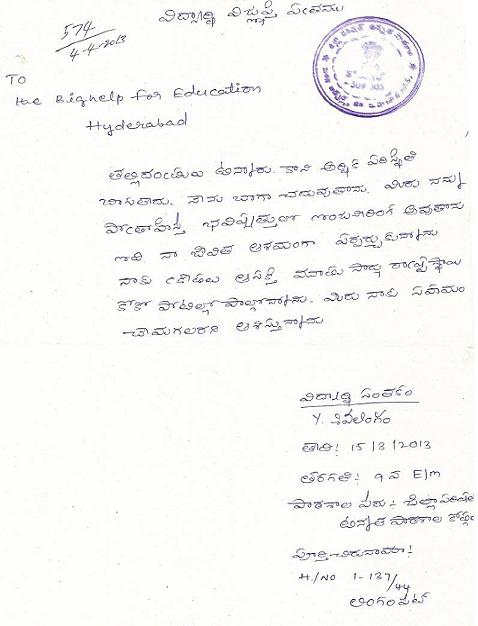 విద్యార్థి విజ్ఞప్తి పత్రము
574
4-4-2013
TO
The Bighelp for Education
Hyderabad
509 303
తల్లిదండ్రులు ఉన్నారు. కాని ఆర్థిక పరిస్థితి
బాగులేదు. నేను బాగా చదువుతాను. మీరు నన్ను
ప్రోత్సాహిస్తే భవిష్యత్తులో ఇంజనీరింగ్ అవుతాను
ఇది నా జీవిత ఆశయంగా ఏర్పర్చుకున్నాను
నాకు క్రీడలు ఆసక్తి మూడు సార్లు రాష్ట్రస్థాయి
కోకో పోటిల్లో పాల్గొన్నాను. మీరు నాకు సహాయం
చేయగలరని ఆశిస్తున్నాను
విద్యార్థి సంతకం
Y. శివలింగం
తేది: 15/3/2013
తరగతి: 9వ E/m
పాఠశాల పేరు: జిల్లా పరిషత్
ఉన్నత పాఠశాల
పూర్తి చిరునామా:
H/NO 1-137/44
లింగంపేట్